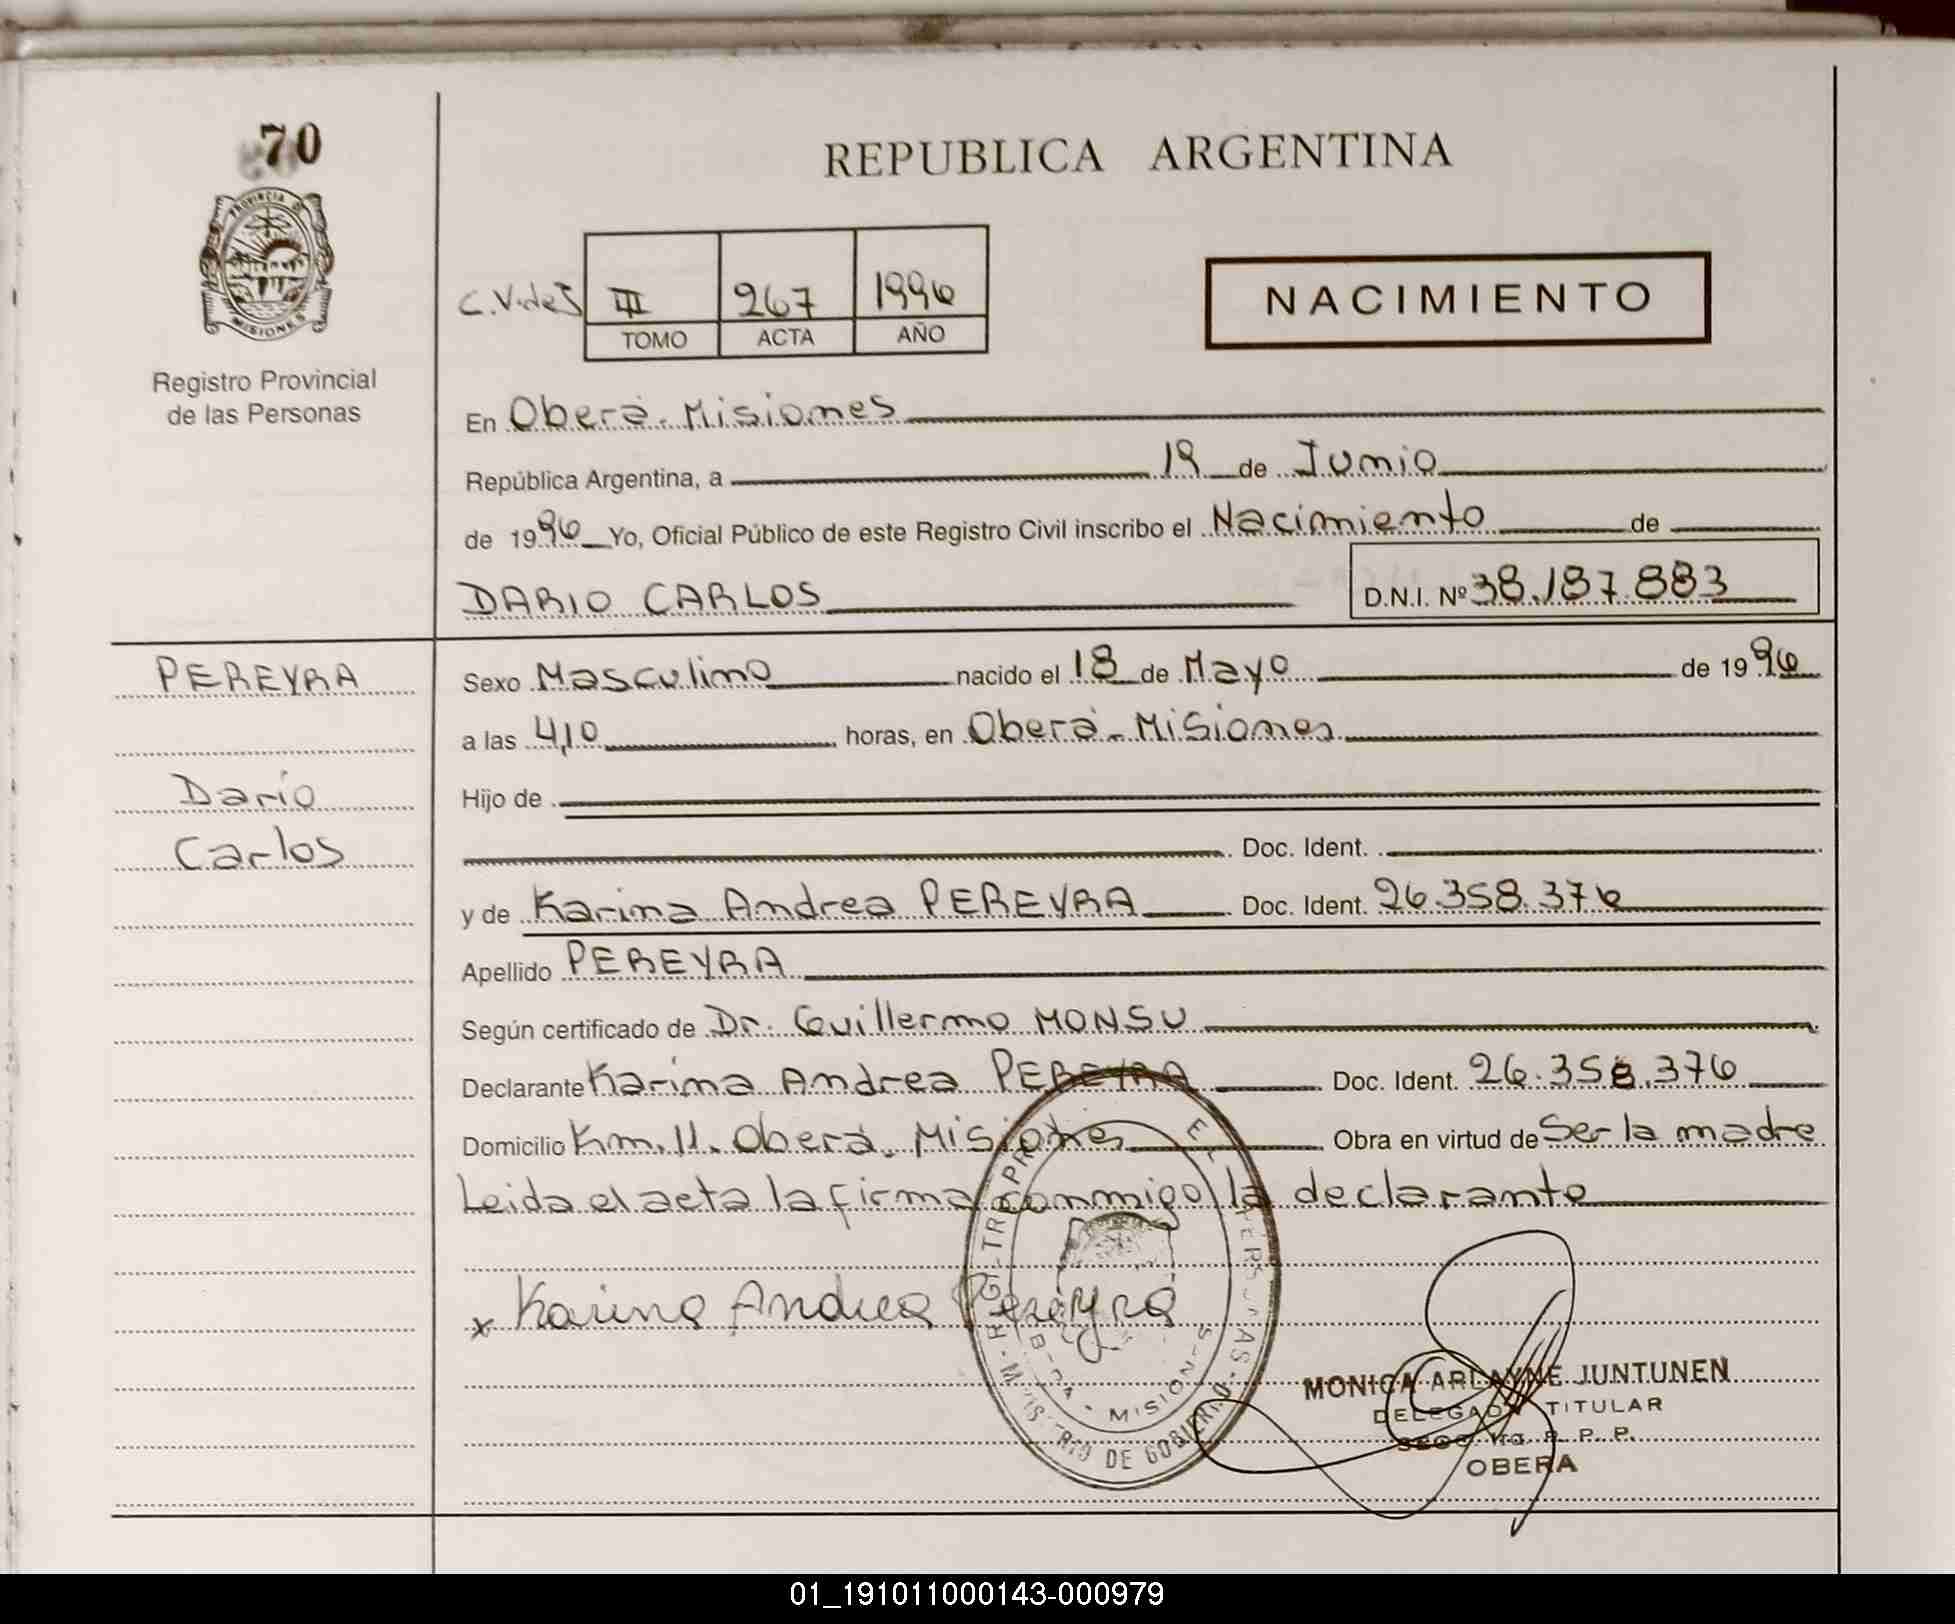 70
PROVINCIA D
MISIONES
Registro Provincial
de las Personas
REPUBLICA ARGENTINA
C.V.de J III 267 1996
TOMO ACTA AÑO
NACIMIENTO
En Oberá. Misiones
República Argentina, a 19 de Junio
de 1996 Yo, Oficial Público de este Registro Civil inscribo el Nacimiento de
DARIO CARLOS D.N.I. Nº 38.187.883
PEREYRA
Darío
Carlos
Sexo Masculino nacido el 18 de Mayo de 1996
a las 4,10 horas, en Oberá - Misiones
Hijo de
Doc. Ident.
y de Karina Andrea PEREYRA Doc. Ident. 26.358.376
Apellido PEREYRA
Según certificado de Dr. Guillermo MONSU
Declarante Karina Andrea PEREYRA Doc. Ident. 26.358.376
Domicilio Km. 11. Oberá. Misiones Obra en virtud de Ser la madre
Leida el acta la firma conmigo la declarante
x Karina Andrea Pereyra
MISIONES
DE GOBIERNO
MONICA ARLAYNE JUNTUNEN
DELEGADA TITULAR
R. P. P.
OBERA
01_191011000143-000979